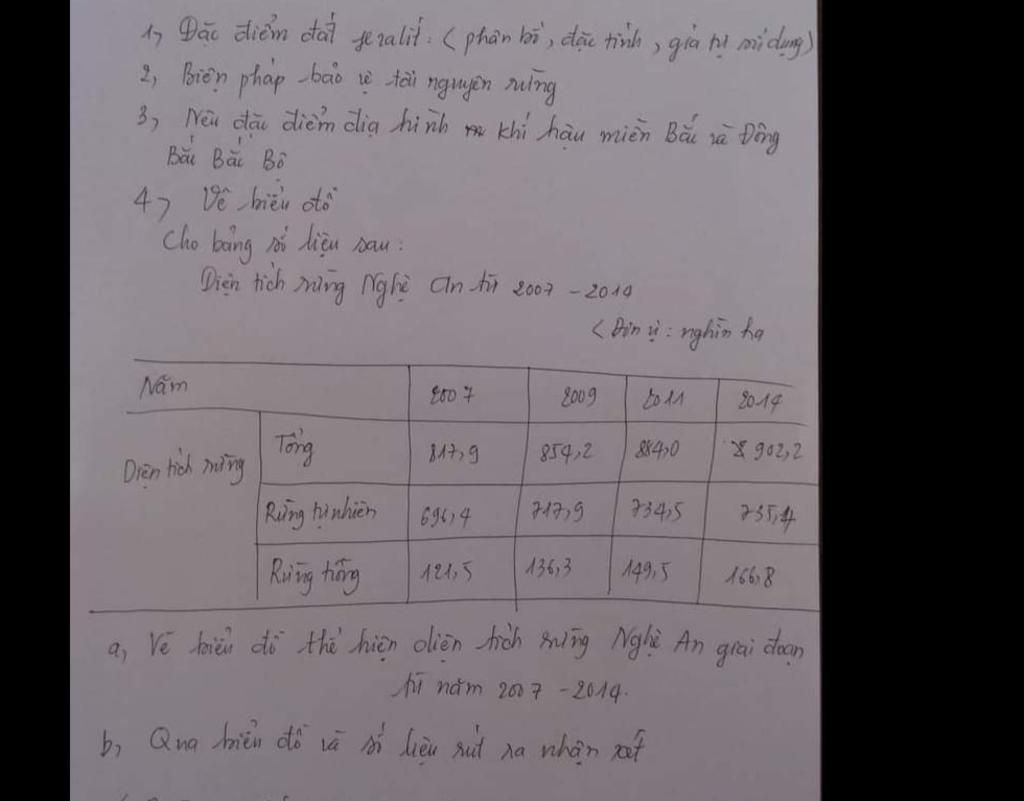 1, Đặc điểm đất feralit: (phân bố, đặc tính, giá trị sử dụng)
2, Biện pháp bảo vệ tài nguyên rừng
3, Nêu đặc điểm địa hình khí hậu miền Bắc và Đông
Bắc Bắc Bộ
4, Vẽ biểu đồ
Cho bảng số liệu sau:
Diện tích rừng Nghệ An từ 2007 - 2014
(Đơn vị: nghìn ha
Năm 2007 2009 2011 2014
Diện tích rừng Tổng 817,9 854,2 884,0 902,2
Rừng tự nhiên 696,4 717,9 734,5 735,4
Rừng trồng 121,5 136,3 149,5 166,8
a, Vẽ biểu đồ thể hiện diện tích rừng Nghệ An giai đoạn
từ năm 2007 - 2014.
b, Qua biểu đồ và số liệu rút ra nhận xét